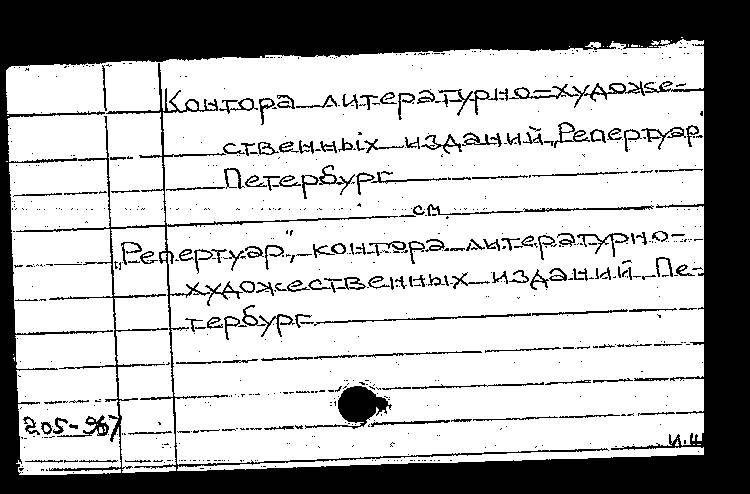 Контора литературно-художе-
ственных изданий „Репертуар"
Петербург
см
„Репертуар", контора литературно-
художественных изданий. Пе-
тербург.
205-967
И.Ш